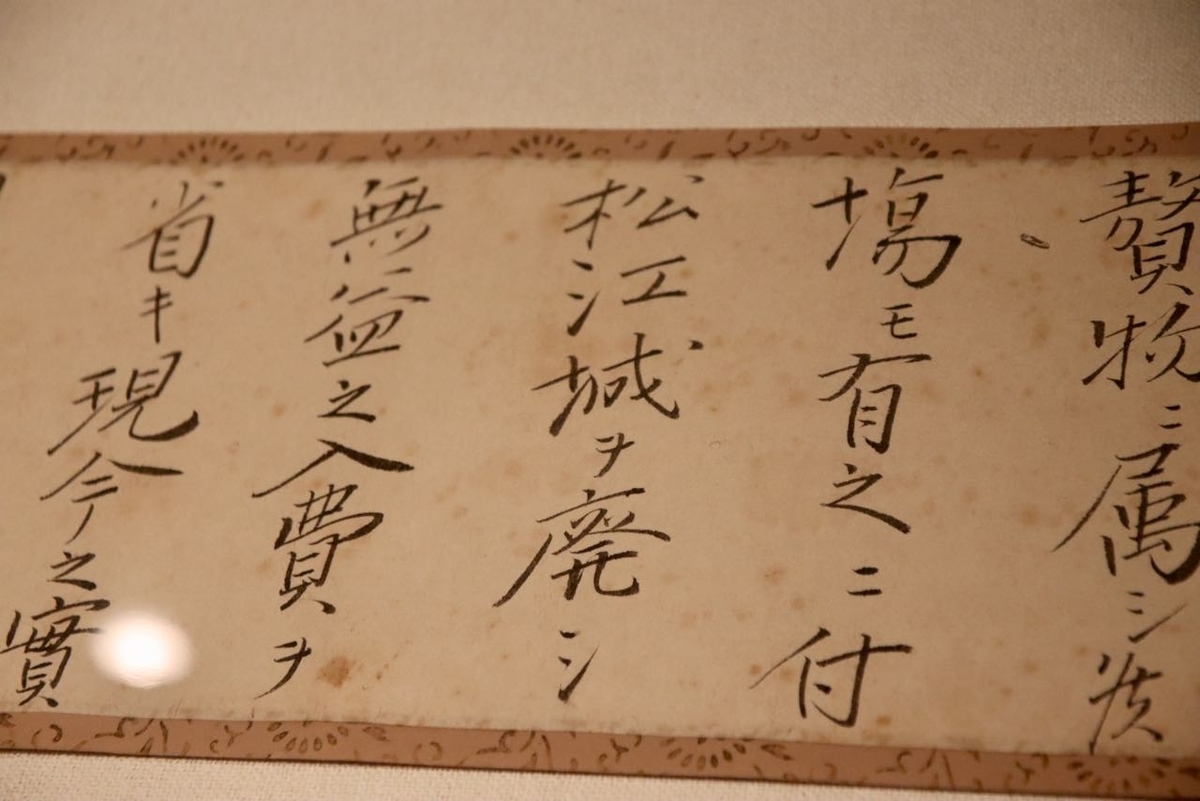 贅物ニ属シ候
塲モ有之ニ付
松江城ヲ廃シ
無益之入費ヲ
省キ現今之實